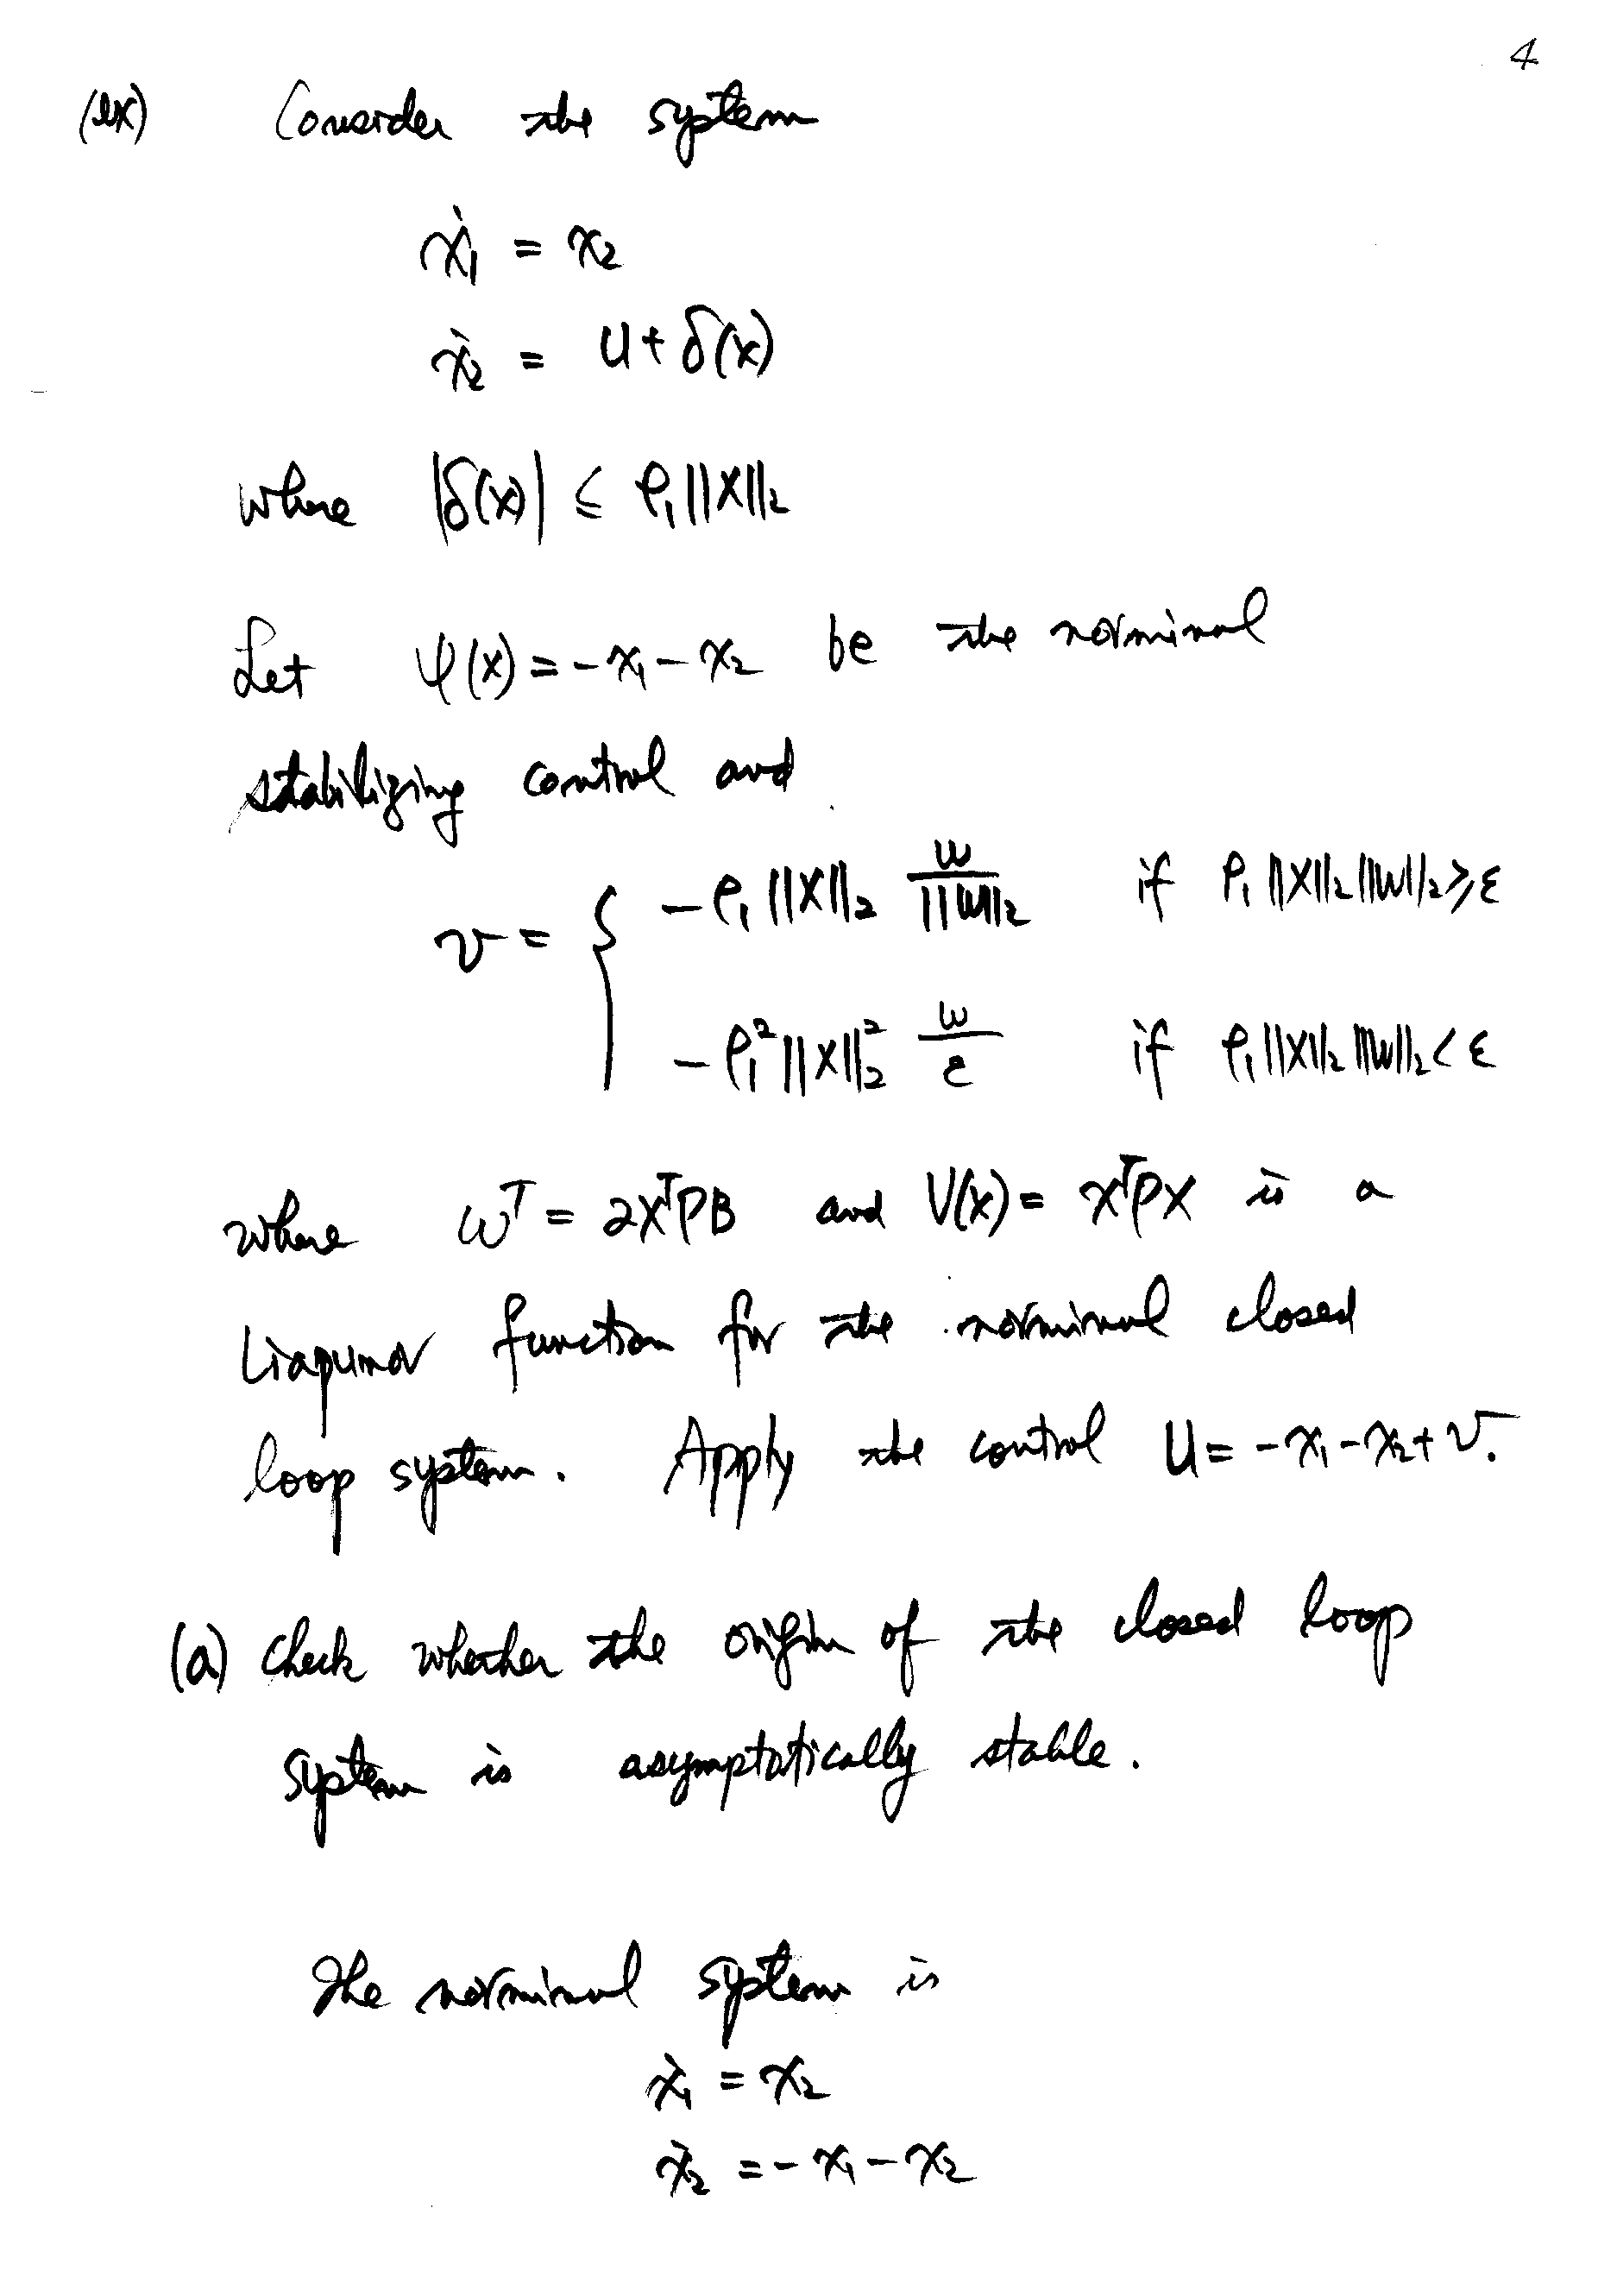 4
(ex) Consider the system
ẋ₁ = x₂
ẋ₂ = u + δ(x)
where |δ(x)| ≤ ρ₁||x||₂
Let ψ(x) = -x₁ - x₂ be the norminal
stabilizing control and
v = { -ρ₁||x||₂ w/||w||₂ if ρ₁||x||₂||w||₂ ≥ ε
-ρ₁²||x||₂² w/ε if ρ₁||x||₂||w||₂ < ε
where ω^T = 2x^T PB and V(x) = x^T P x is a
Liapunov function for the norminal closed
loop system. Apply the control u = -x₁ - x₂ + v.
(a) Check whether the origin of the closed loop
system is asymptotically stable.
The norminal system is
ẋ₁ = x₂
ẋ₂ = -x₁ - x₂